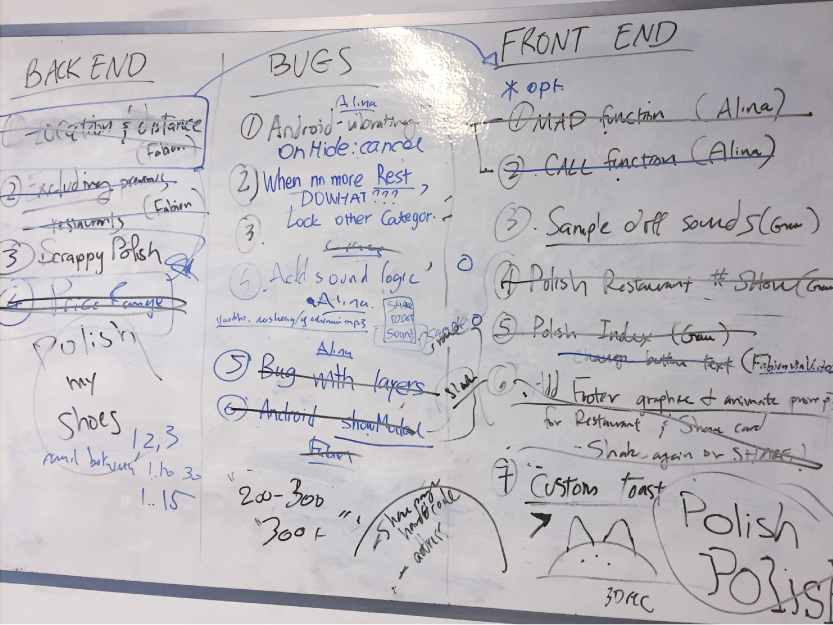 BACK END
① Location & distance
(Fabien)
② Excluding previous
restaurants (Fabien)
③ Scrappy Polish
④ Price Range
Polish
my
shoes
1, 2, 3
1..10 30
1..15
BUGS
Alina
① Android - vibrating
OnHide: cancel
② When no more Rest
DO WHAT ???
③ Lock other Categor.
④ Add sound logic
Alina
SHAKE
TOAST
SOUND
Alina
⑤ Bug with layers
⑥ Android showModal
"200-300
"300+"
- Share page
hardcode
address
FRONT END
* opt.
① MAP function (Alina)
② CALL function (Alina)
③. Sample diff sounds (
④ Polish Restaurant # Show (
⑤ Polish Index (
change button text (Fabien
⑥ Add Footer graphic & animate prompt
for Restaurant & Share card
- Shake again or SHARE)
⑦ Custom toast
Polish
POlis